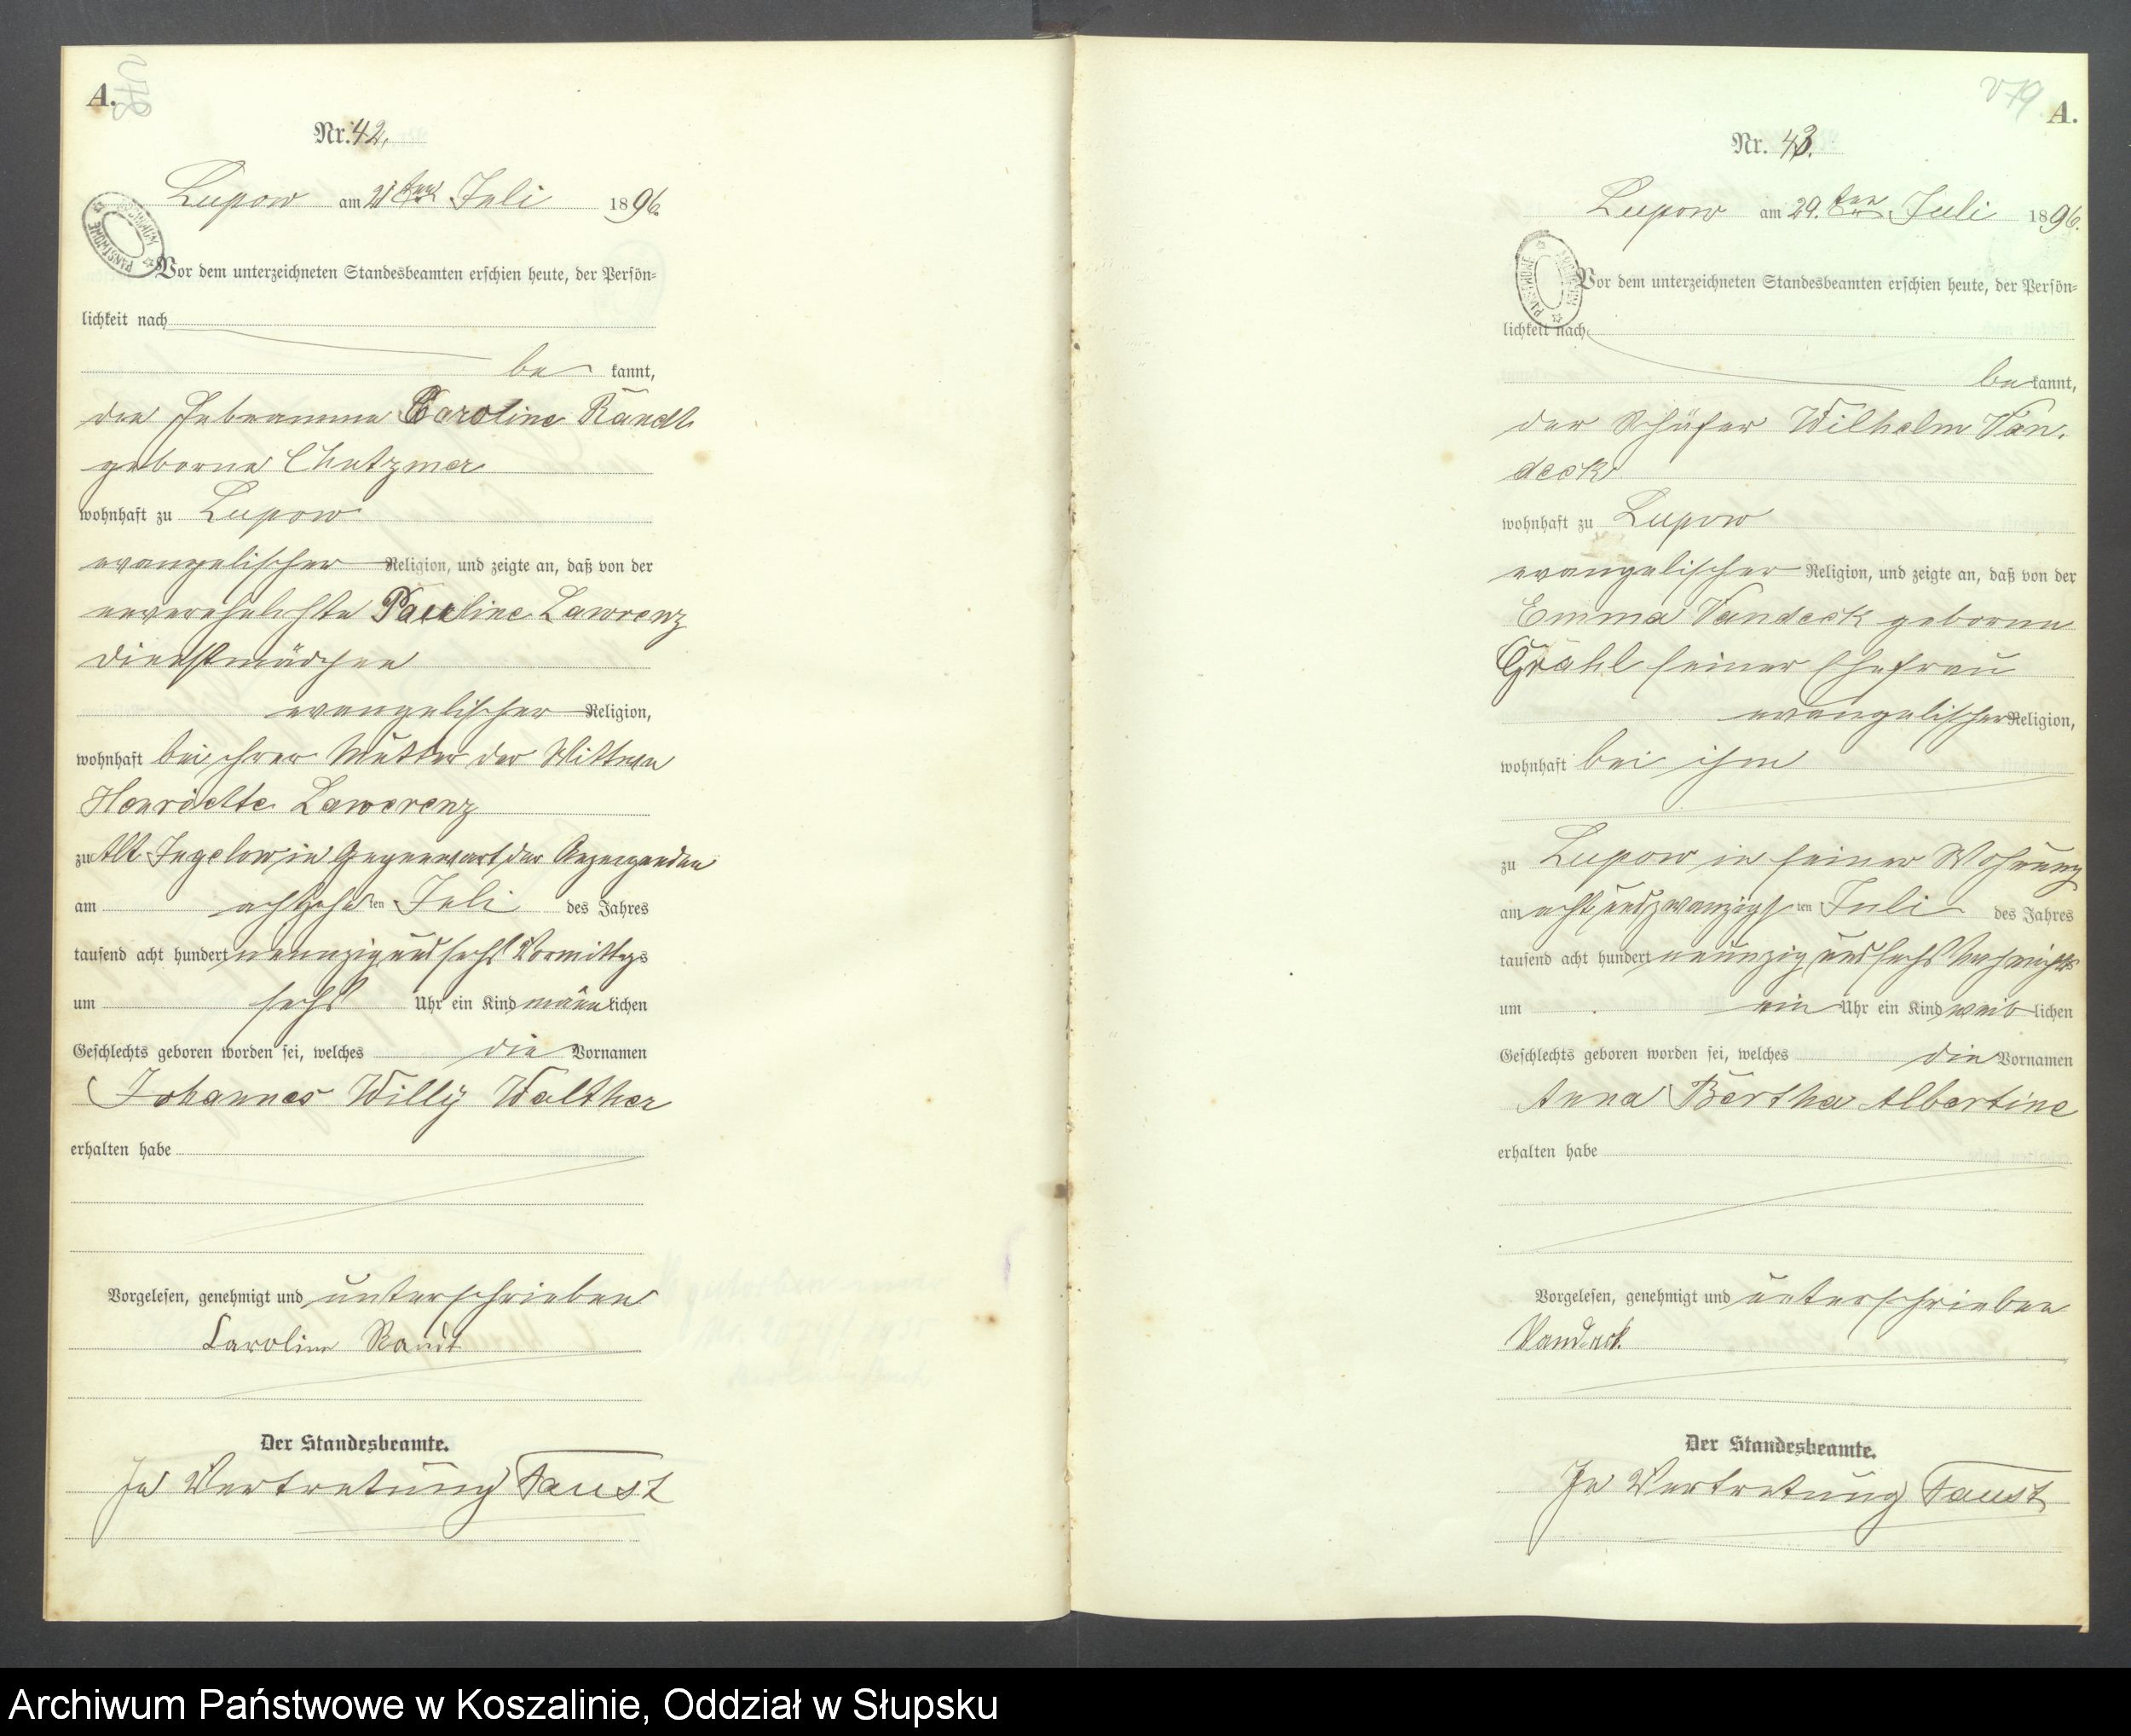 A.
Nr. 42.
Lupow am 21ten Juli 1896.
Vor dem unterzeichneten Standesbeamten erschien heute, der Persön=
lichkeit nach
be kannt,
die Hebeamme Caroline Randt
geborne Chutzmer
wohnhaft zu Lupow
evangelischer Religion, und zeigte an, daß von der
unverehelichte Pauline Lawrenz
Dienstmädchen
evangelischer Religion,
wohnhaft bei ihrer Mutter der Wittwe
Henriette Lawerenz
zu Alt Jugelow in Gegenwart der Anzeigenden
am achtzehnten Juli des Jahres
tausend acht hundert neunzig und sechs Vormittags
um sechs Uhr ein Kind männlichen
Geschlechts geboren worden sei, welches die Vornamen
Johannes Willy Walther
erhalten habe
Vorgelesen, genehmigt und unterschrieben
Caroline Randt
Der Standesbeamte.
In Vertretung Faust
V79
A.
Nr. 43.
Lupow am 29.ten Juli 1896.
Vor dem unterzeichneten Standesbeamten erschien heute, der Persön=
lichkeit nach
be kannt,
der Schäfer Wilhelm Van.
deck
wohnhaft zu Lupow
evangelischer Religion, und zeigte an, daß von der
Emma Vandeck geborne
Grahl seiner Ehefrau
evangelischer Religion,
wohnhaft bei ihm
zu Lupow in seiner Wohnung
am acht und zwanzigsten Juli des Jahres
tausend acht hundert neunzig und sechs Nachmittags
um ein Uhr ein Kind weiblichen
Geschlechts geboren worden sei, welches die Vornamen
Anna Bertha Albertine
erhalten habe
Vorgelesen, genehmigt und unterschrieben
Vandeck.
Der Standesbeamte.
In Vertretung Faust
Archiwum Państwowe w Koszalinie, Oddział w Słupsku